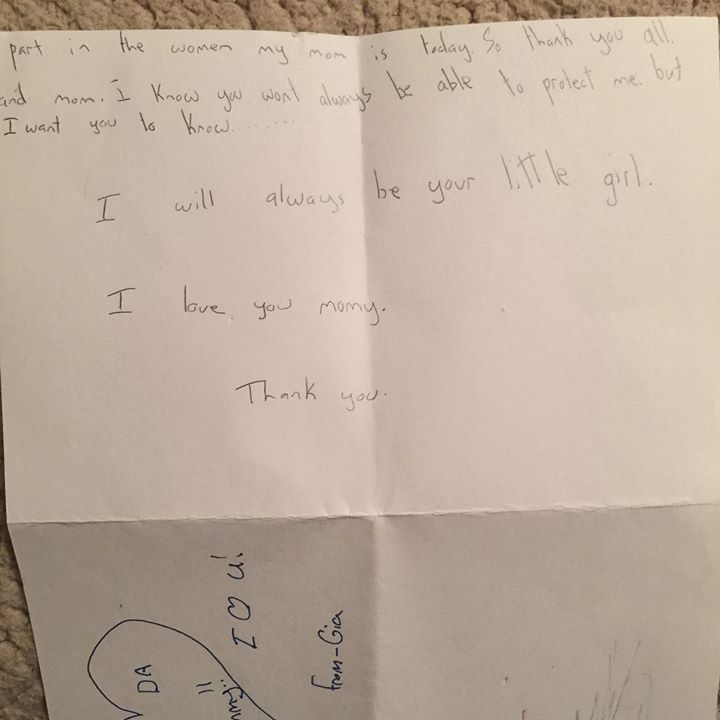 part in the women my mom is today. So thank you all.
and mom. I know you wont always be able to protect me. but
I want you to know........
I will always be your little girl.
I love you momy.
Thank you.
DA
I ♡ u!
from-Gia